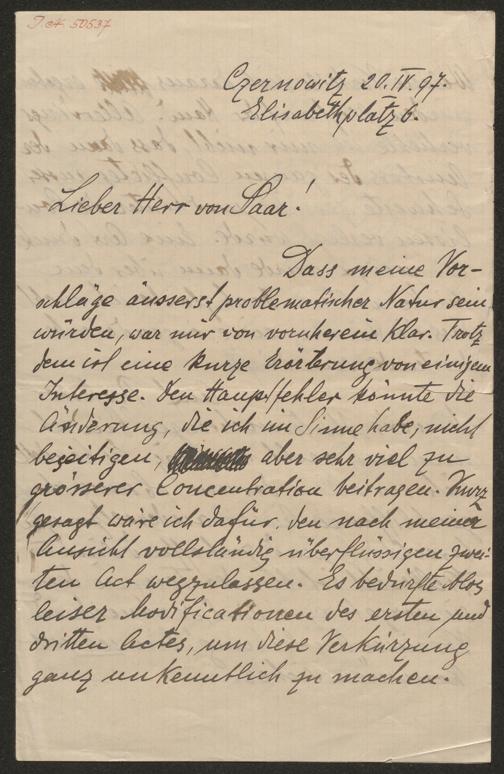 J.N. 50537
Czernowitz 20.IV.97.
Elisabethplatz 6.
Lieber Herr von Saar!
Dass meine Vor-
schläge äusserst problematischer Natur sein
würden, war mir von vornherein klar. Trotz
dem ist eine kurze Erörterung von einigem
Interesse. Den Hauptfehler könnte die
Änderung, die ich im Sinne habe, nicht
beseitigen, aber sehr viel zu
grösserer Concentration beitragen. Kurz
gesagt wäre ich dafür, den nach meiner
Ansicht vollständig überflüssigen zwei-
ten Act wegzulassen. Es bedürfte blos
leiser Modificationen des ersten und
dritten Actes, um diese Verkürzung
ganz unkenntlich zu machen.